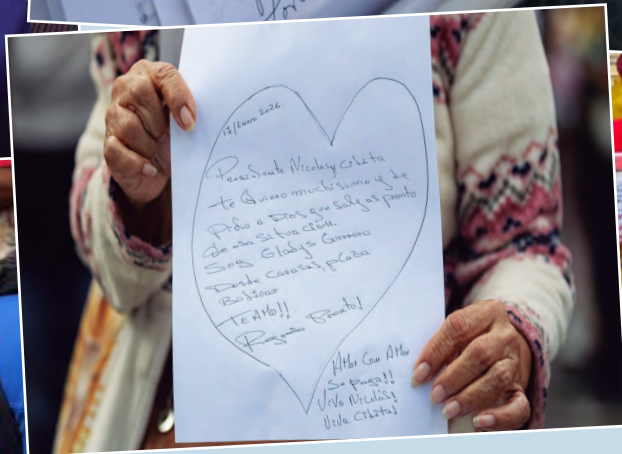 17/Enero 2026.
Presidente Nicolas y Cilita
te Quiero muchissimo y le
Pido a Dios que salgas pronto
de esa situación.
Soy Gladys Guerrero
Desde Caracas, plaza
Bolivar
TE AMO!!
Regresen Pronto!
AMor Con AMor
Se Paga!!
ViVa Nicolás!
Viva Cilita!